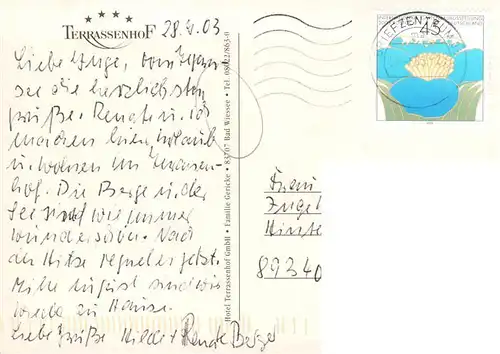 TERRASSENHOF
28.8.03
Liebe Inge, vom Tegern-
see die herzlichsten
Grüße. Renate u. ich
machen hier Urlaub
u. wohnen im Terrassen-
hof. Die Berge u. der
See sind wie immer
wunderschön. Nach
der Hitze regnet es jetzt.
Mitte August sind wir
wieder zu Hause.
Liebe Grüße Hilde + Renate Berger
Hotel Terrassenhof GmbH • Familie Gericke • 83707 Bad Wiessee • Tel. 08022/863-0
BRIEFZENTRUM
45
DEUTSCHLAND
Frau
89340